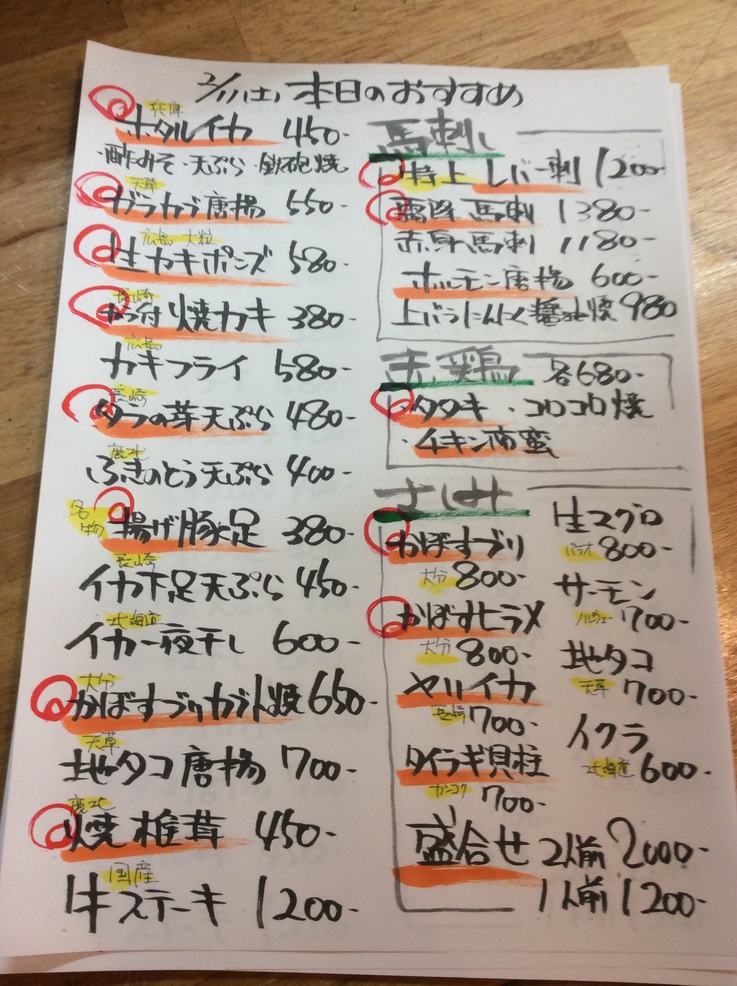 2/11(土) 本日のおすすめ
兵庫
ホタルイカ 450-
・酢みそ・天ぷら・鉄砲焼
天草
ガラカブ唐揚 550-
広島 大粒
生カキポンズ 580-
長崎
から付焼カキ 380-
広島
カキフライ 580-
長崎
タラの芽天ぷら 480-
鹿北
ふきのとう天ぷら 400-
名物
揚げ豚足 380-
長崎
イカ下足天ぷら 450-
北海道
イカ一夜干し 600-
大分
かぼすブリカブト焼 650-
天草
地タコ唐揚 700-
鹿北
焼椎茸 450-
国産
牛ステーキ 1200-
馬刺し
・特上レバー刺 1200-
霜降馬刺 1380-
赤身馬刺 1180-
ホルモン唐揚 600-
上バラにんにく醤油焼 980
赤鶏 各680-
・タタキ ・コロコロ焼
・チキン南蛮
さしみ
かぼすブリ
大分 800-
かぼすヒラメ
大分 800-
ヤリイカ
長崎 700-
タイラギ貝柱
カンコク 700-
生マグロ
800-
サーモン
ノルウェー 700-
地タコ
天草 700-
イクラ
北海道 600-
盛合せ 2人前 2000-
1人前 1200-